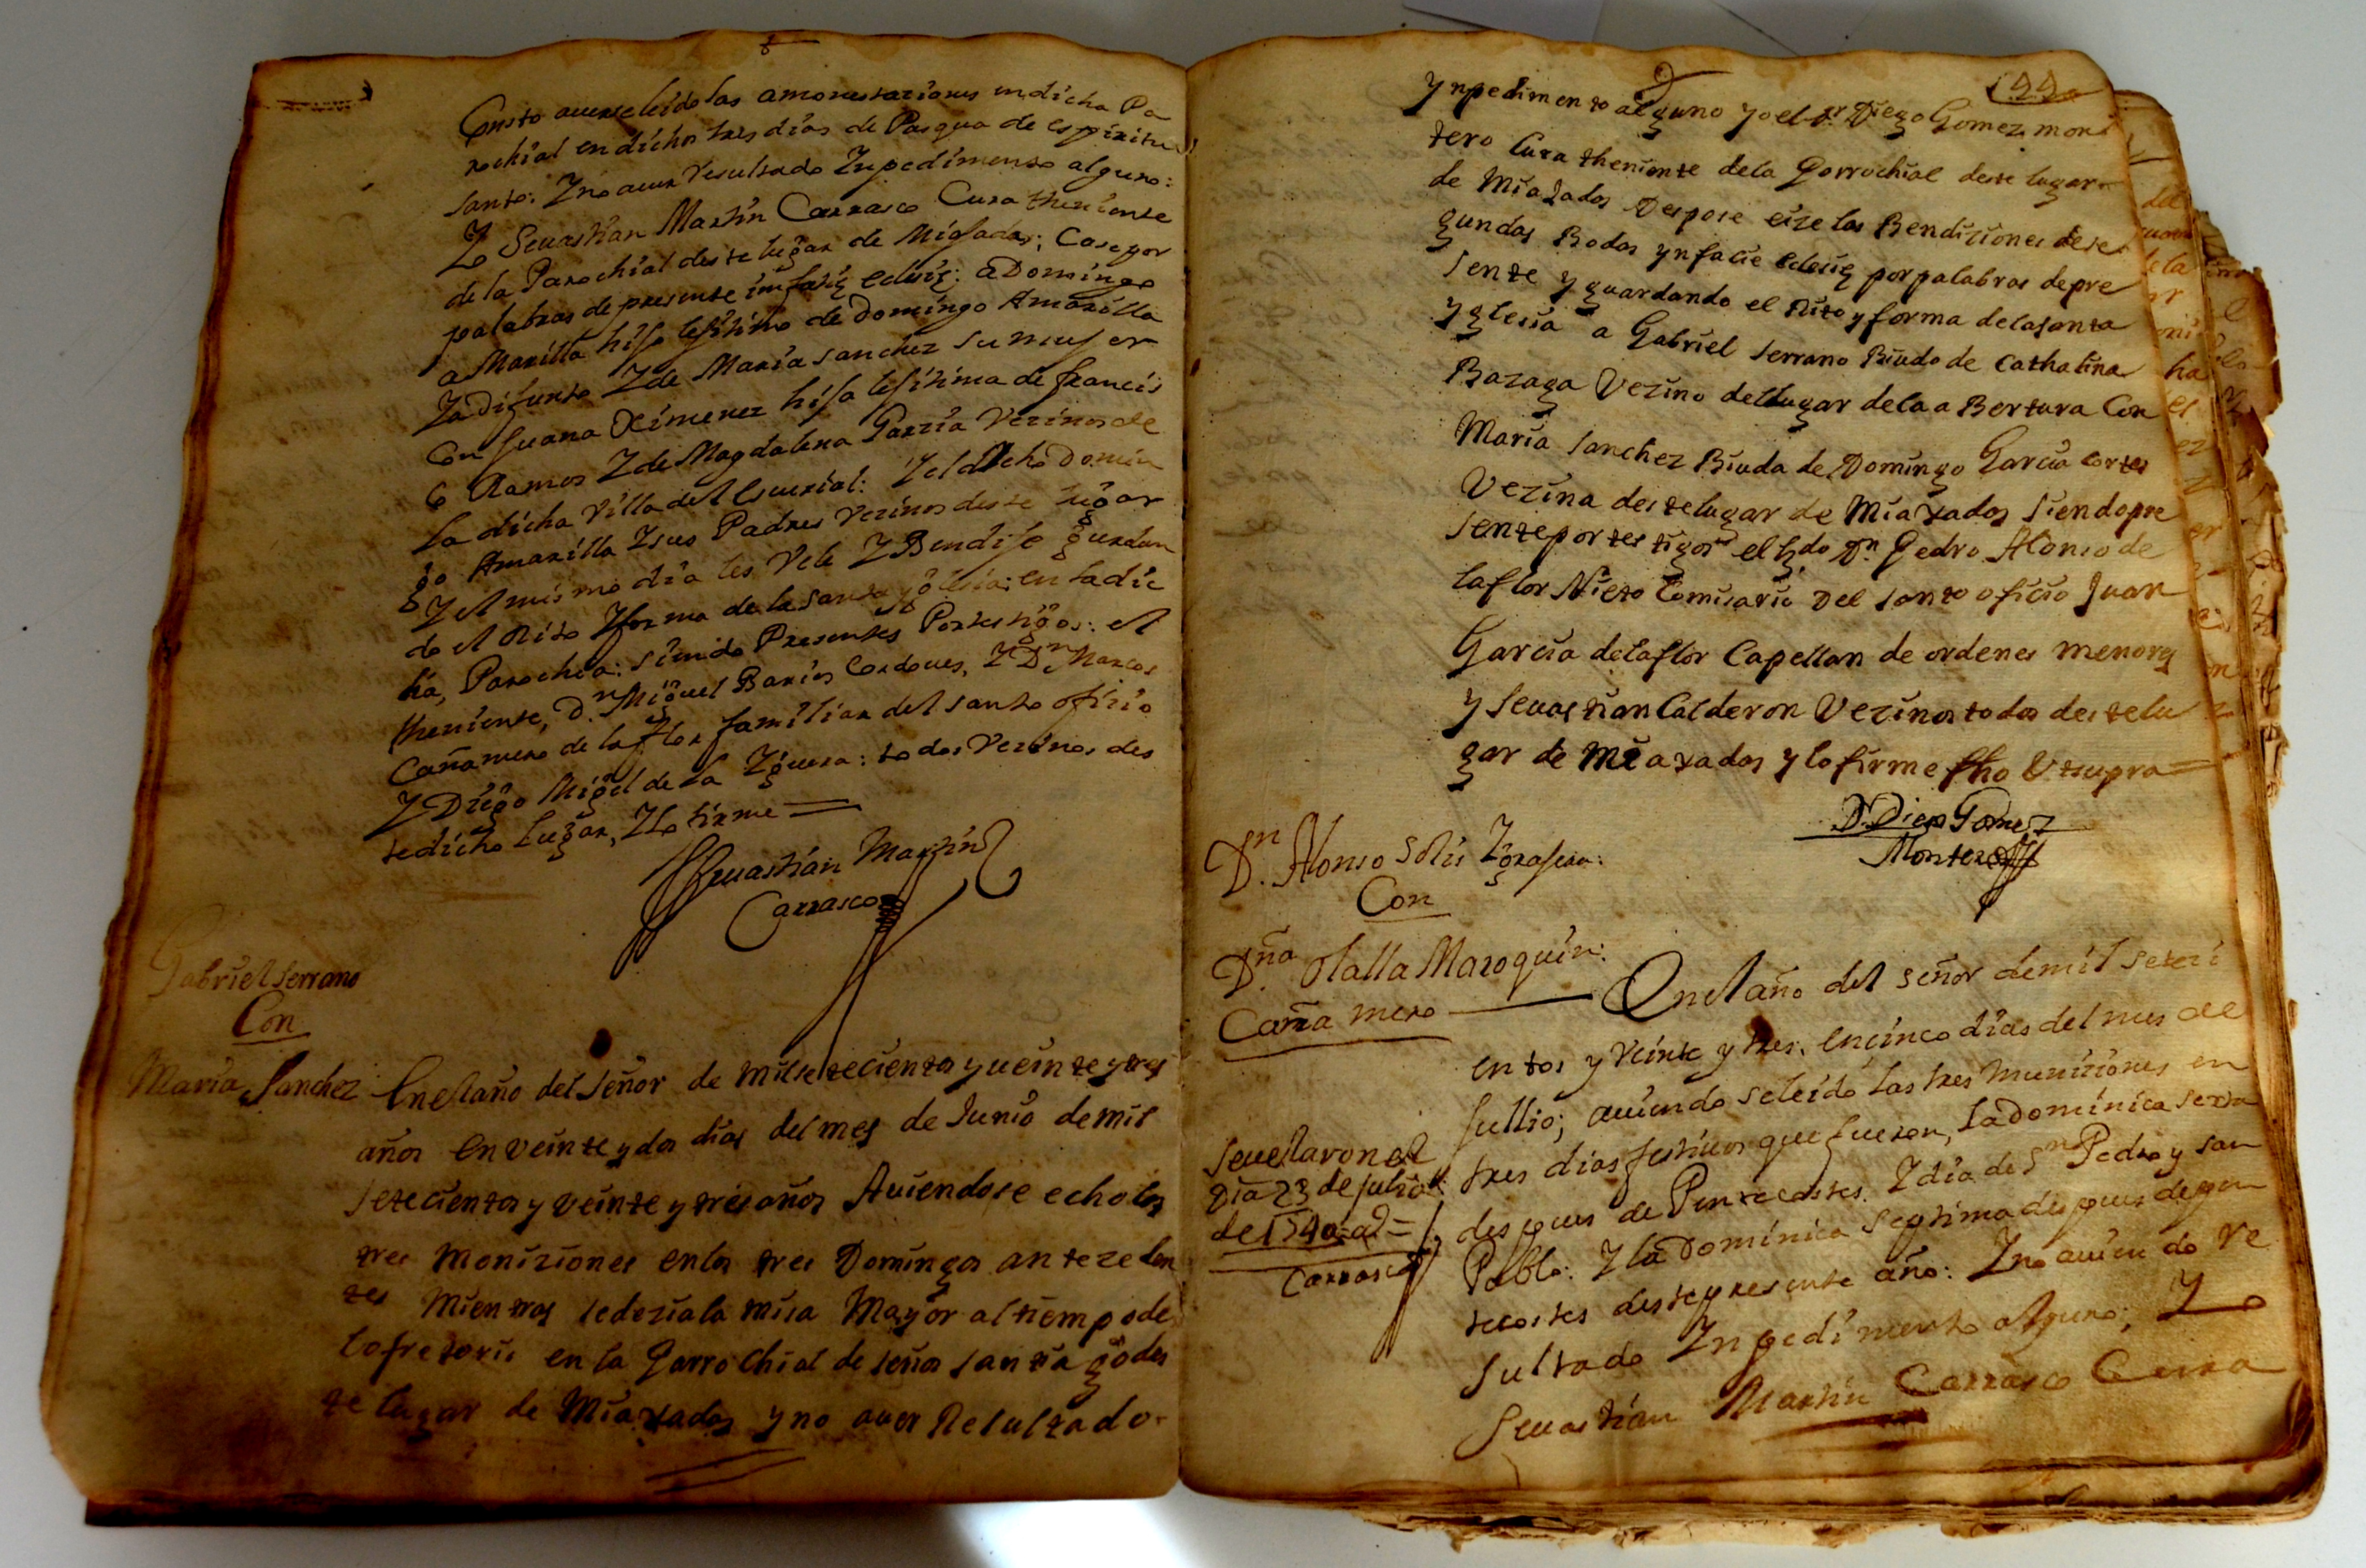 Consto auerse leido las amonestaziones en dicha Pa
rochial en dichos tres dias de Pasqua de espiritu
santo: Y no auer Resultado Inpedimento alguno:
Yo Seuastian Martin Carrasco Cura theniente
de la Parochial deste lugar de Miajadas; Case por
palabras de presente in facie eclesię: a Domingo
Amarilla hijo lejitimo de Domingo Amarilla
Ya difunto Y de Maria sanchez su mujer
Con Juana Ximenez hija lejitima de francis
co Ramos Y de Magdalena Garzia Vezinos de
la dicha Villa del Escurial: Y el dicho Domin
go Amarilla Y sus Padres Vezinos deste lugar
Y el mismo dia les Vele Y Bendije guardan
do el Rito Y forma de la santa yglesia: en la dic
ha, Parochia: siendo Presentes Por testigos: el
theniente, D.n Miguel Barios Cordoues, Y D.n Marcos
Cañamero de la flor familiar del santo ofizio
Y Diego Migel de la Yguera: todos Vezinos des
te dicho Lugar, Y lo firme
Seuastian Martin
Carrasco
Gabriel Serrano
Con
Maria Sanchez
En el año del Señor de mil setecientos y ueinte y tres
años en veinte y dos dias del mes de Junio de mil
setecientos y veinte y tres años Auiendose echo las
tres Moniziones en los tres Domingos antezeden
tes Mientras se dezia la misa Mayor al tiempo de
lofretorio en la Parrochial de señor santiago des
te lugar de Miaxadas y no auer Resultado
144
Ynpedimento alguno yo el Dr Diego Gomez mon
tero Cura theniente de la Parrochial deste lugar
de Miajadas Despose eize las Bendiziones de se
gundas Bodas yn facie eclesię por palabras de pre
sente y guardando el Rito y forma de la santa
yglesia a Gabriel Serrano Biudo de Cathalina
Bazaga Vezino del lugar de la a Bertura Con
Maria Sanchez Biuda de Domingo Garcia Cortes
Vezina deste lugar de Miaxadas siendo pre
sente por testigos el Lz.do Dn Pedro Alonso de
la flor Nieto Comisario Del santo oficio Juan
Garcia de la flor Capellan de ordenes menores
y Seuastian Calderon Vezinos todos deste lu
gar de Miaxadas y lo firme fho Vt supra
D. Diego Gomez
Montero
D.n Alonso Solis
Con
D.ña Olalla Maroquin:
Caña mero
En el año del señor de mil seteci
entos y Veinte y tres. en cinco dias del mes de
Jullio; auiendo se leido las tres muniziones en
tres dias festiuos que fueron, la Dominica sexta
despues de Pentecostes. Y dia de Sn Pedro y san
Pablo: Y la Dominica septima despues de pen
tecostes deste presente año: Y no auiendo Re
sultado Inpedimento alguno; Yo
Seuastian Martin Carrasco Cura
Se uelaron el
Dia 23 de julio
de 1740 as =
Carrasco